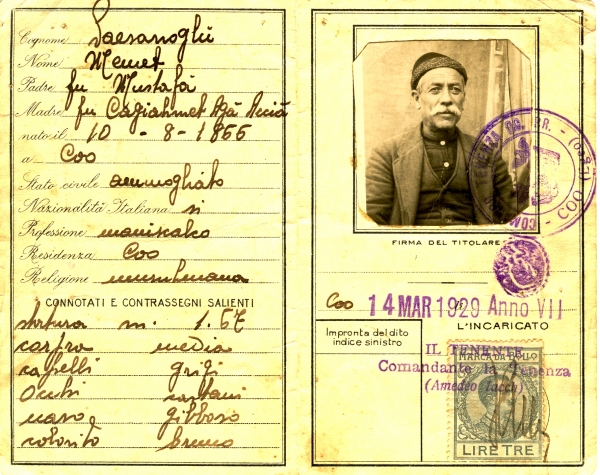 Cognome
Nome Memet
Padre fu Mustafà
Madre fu
nato il 10 - 8 - 1866
a Coo
Stato civile ammogliato
Nazionalità Italiana si
Professione maniscalco
Residenza Coo
Religione musulmana
CONNOTATI E CONTRASSEGNI SALIENTI
statura m. 1.67
corpra media
capelli grigi
Occhi castani
naso gibboso
colorito bruno
COO
FIRMA DEL TITOLARE
Coo 14 MAR 1929 Anno VII
L'INCARICATO
Impronta del dito
indice sinistro
IL TENENTE
Comandante la Tenenza
(Amedeo Tacchi)
MARCA DA BOLLO
LIRE TRE